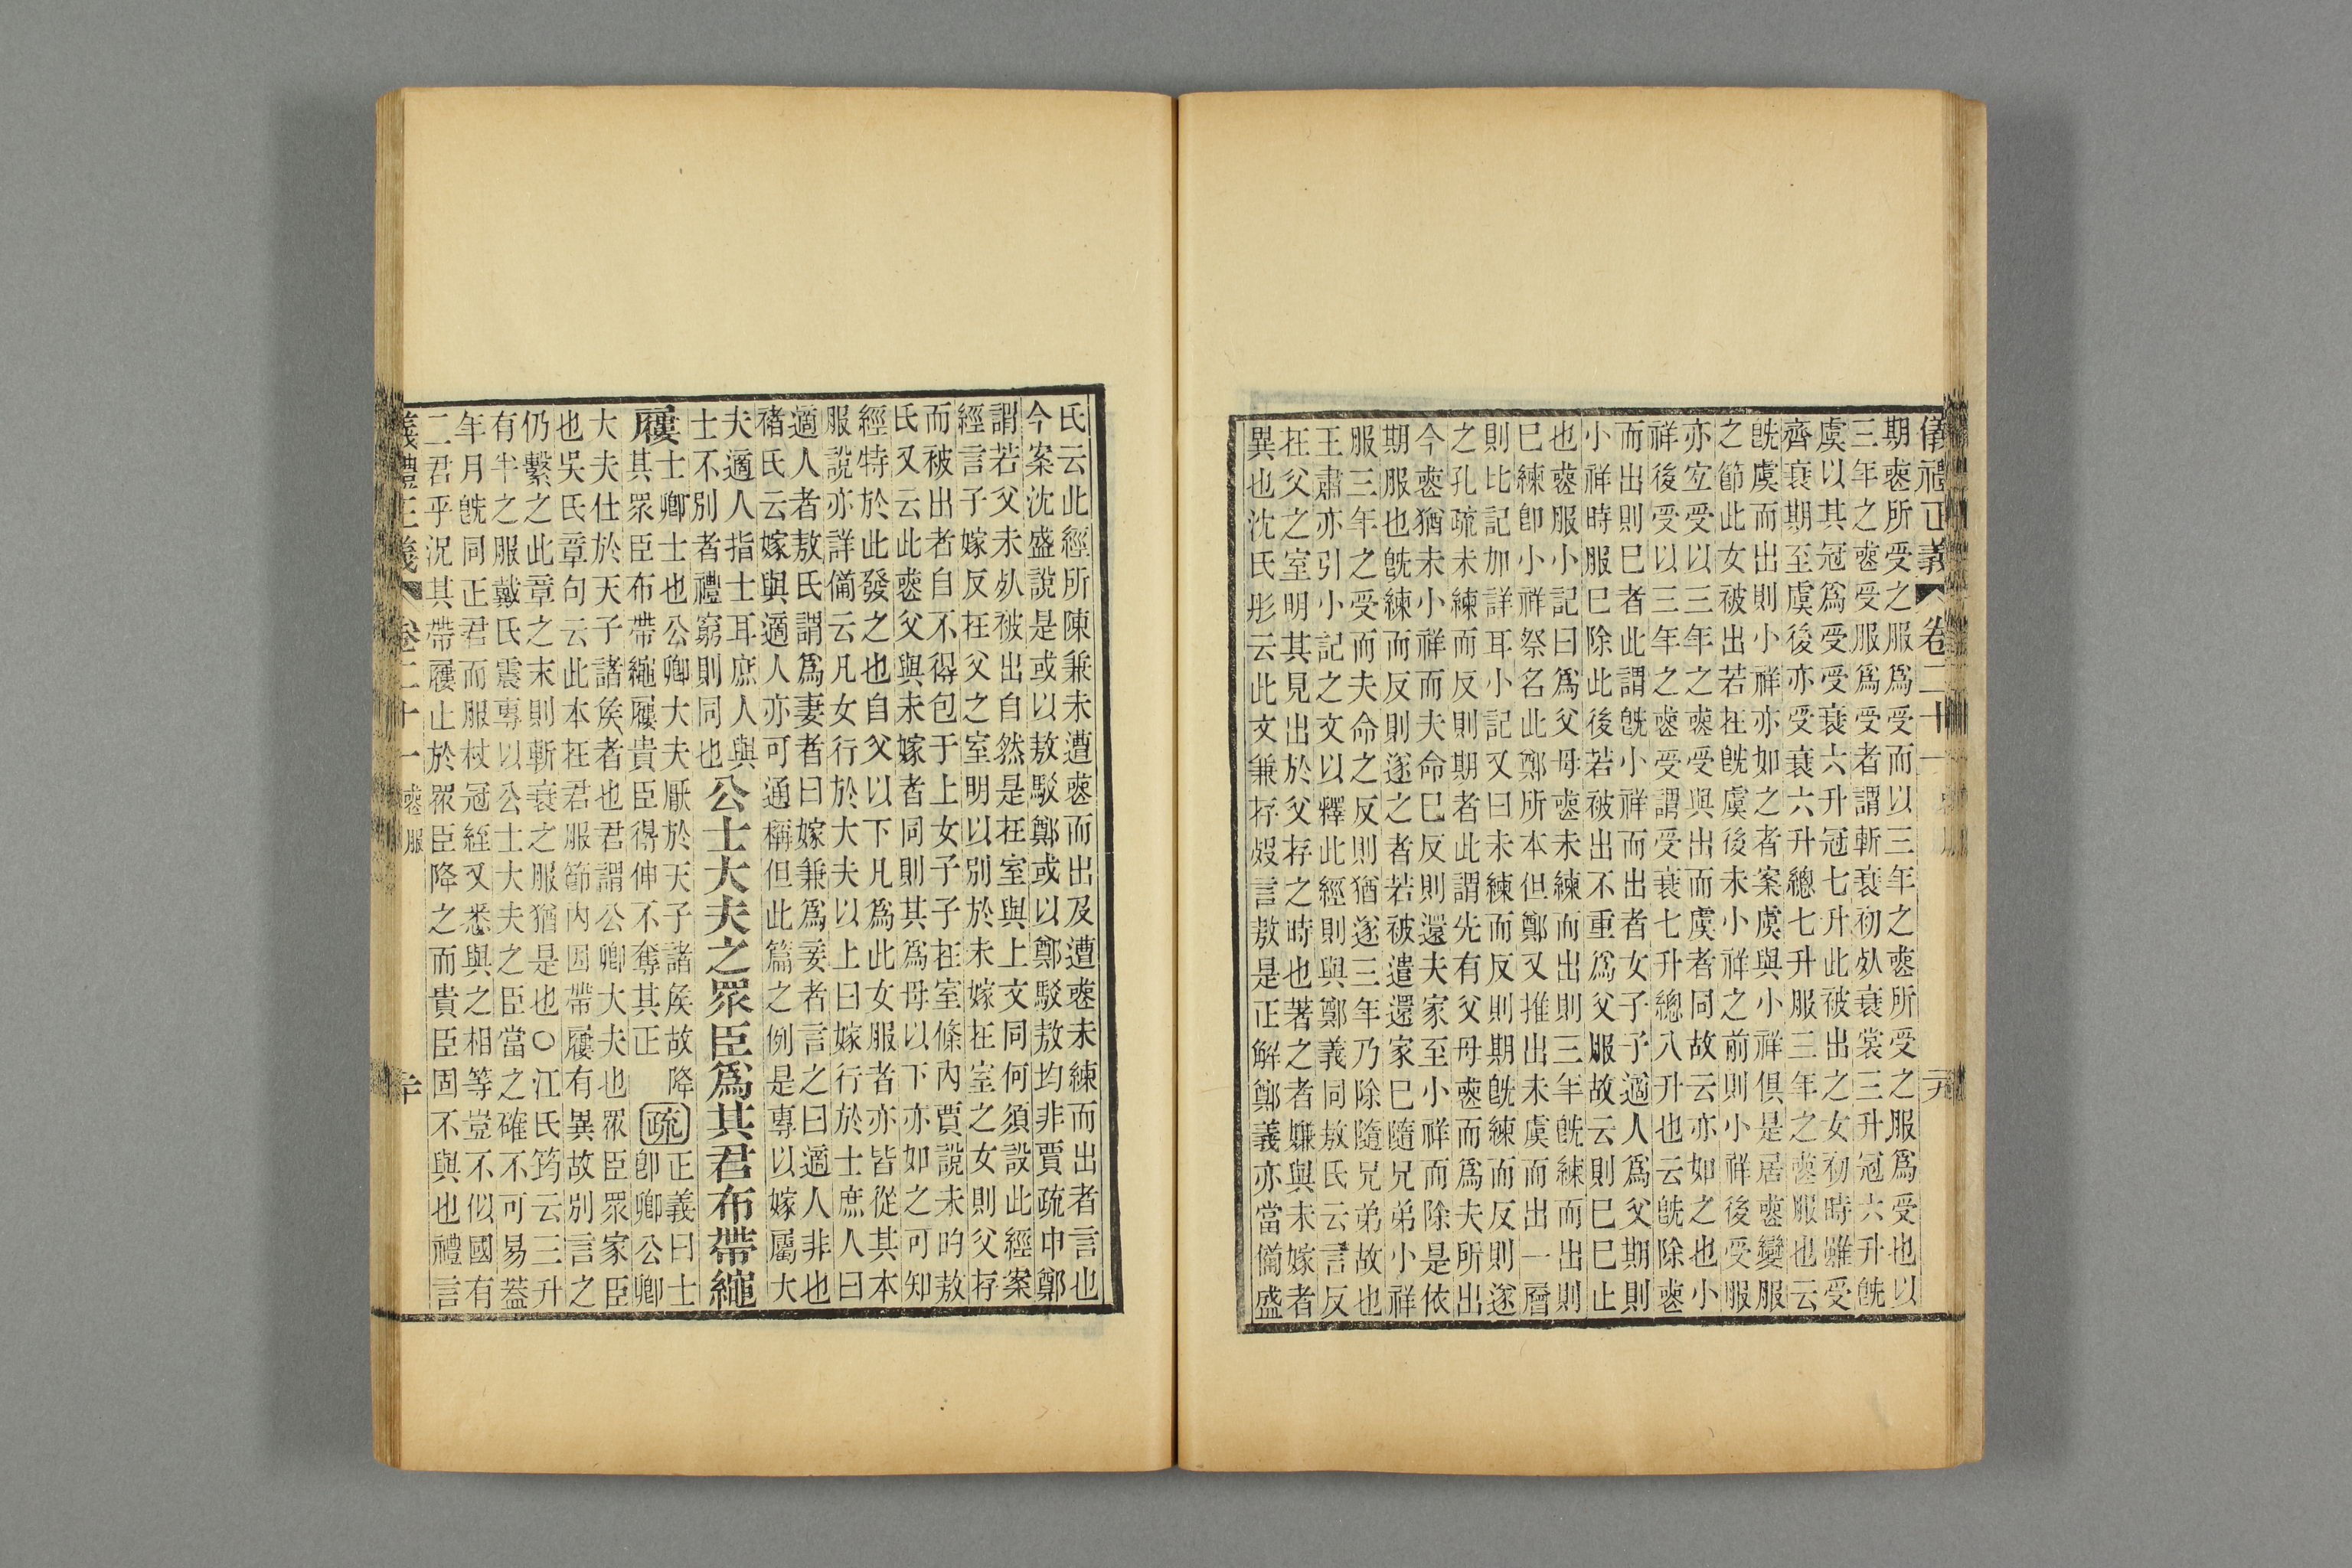 儀禮正義 卷二十一 喪服
期喪所受之服爲受而以三年之喪所受之服爲受也以
三年之喪受服爲受者謂斬衰初死衰裳三升冠六升旣
虞以其冠爲受受衰六升冠七升此被出之女初時雖受
齊衰期至虞後亦受衰六升總七升服三年之喪服也云
旣虞而出則小祥亦如之者案虞與小祥俱是居喪變服
之節此女被出若在旣虞後未小祥之前則小祥後受服
亦宜受以三年之喪受與出而虞者同故云亦如之也小
祥後受以三年之喪受謂受衰七升總八升也云旣除喪
而出則已者此謂旣小祥而出者女子子適人爲父期則
小祥時服已除此後若被出不重爲父服故云則已已止
也喪服小記曰爲父母喪未練而出則三年旣練而出則
已練卽小祥祭名此鄭所本但鄭又推出未虞而出一層
則比記加詳耳小記又曰未練而反則期旣練而反則遂
之孔疏未練而反則期者此謂先有父母喪而爲夫所出
今喪猶未小祥而夫命已反則還夫家至小祥而除是依
期服也旣練而反則遂之者若被遣還家已隨兄弟小祥
服三年之受而夫命之反則猶遂三年乃除隨兄弟故也
王肅亦引小記之文以釋此經則與鄭義同敖氏云言反
在父之室明其見出於父存之時也著之者嫌與未嫁者
異也沈氏彤云此文兼存歿言敖是正解鄭義亦當備盛
氏云此經所陳兼未遭喪而出及遭喪未練而出者言也
今案沈盛說是或以敖駁鄭或以鄭駁敖均非賈疏申鄭
謂若父未死被出自然是在室與上文同何須設此經案
經言子嫁反在父之室明以別於未嫁在室之女則父存
而被出者自不得包于上女子子在室條內賈說未昀敖
氏又云此喪父與未嫁者同則其爲母以下亦如之可知
經特於此發之也自父以下凡爲此女服者亦皆從其本
服說亦詳備云凡女行於大夫以上曰嫁行於士庶人曰
適人者敖氏謂爲妻者曰嫁兼爲妾者言之曰適人非也
褚氏云嫁與適人亦可通稱但此篇之例是專以嫁屬大
夫適人指士耳庶人與
士不別者禮窮則同也
公士大夫之眾臣爲其君布帶繩
屨
士卿士也公卿大夫厭於天子諸矦故降
其眾臣布帶繩屨貴臣得伸不奪其正
疏
正義曰士
卽卿公卿
大夫仕於天子諸矦者也君謂公卿大夫也眾臣眾家臣
也吳氏章句云此本在君服節內因帶屨有異故別言之
仍繫之此章之末則斬衰之服猶是也○江氏筠云三升
有半之服戴氏震專以公士大夫之臣當之確不可易蓋
年月旣同正君而服杖冠絰又悉與之相等豈不似國有
二君乎況其帶屨止於眾臣降之而貴臣固不與也禮言
儀禮正義 卷二十一 喪服